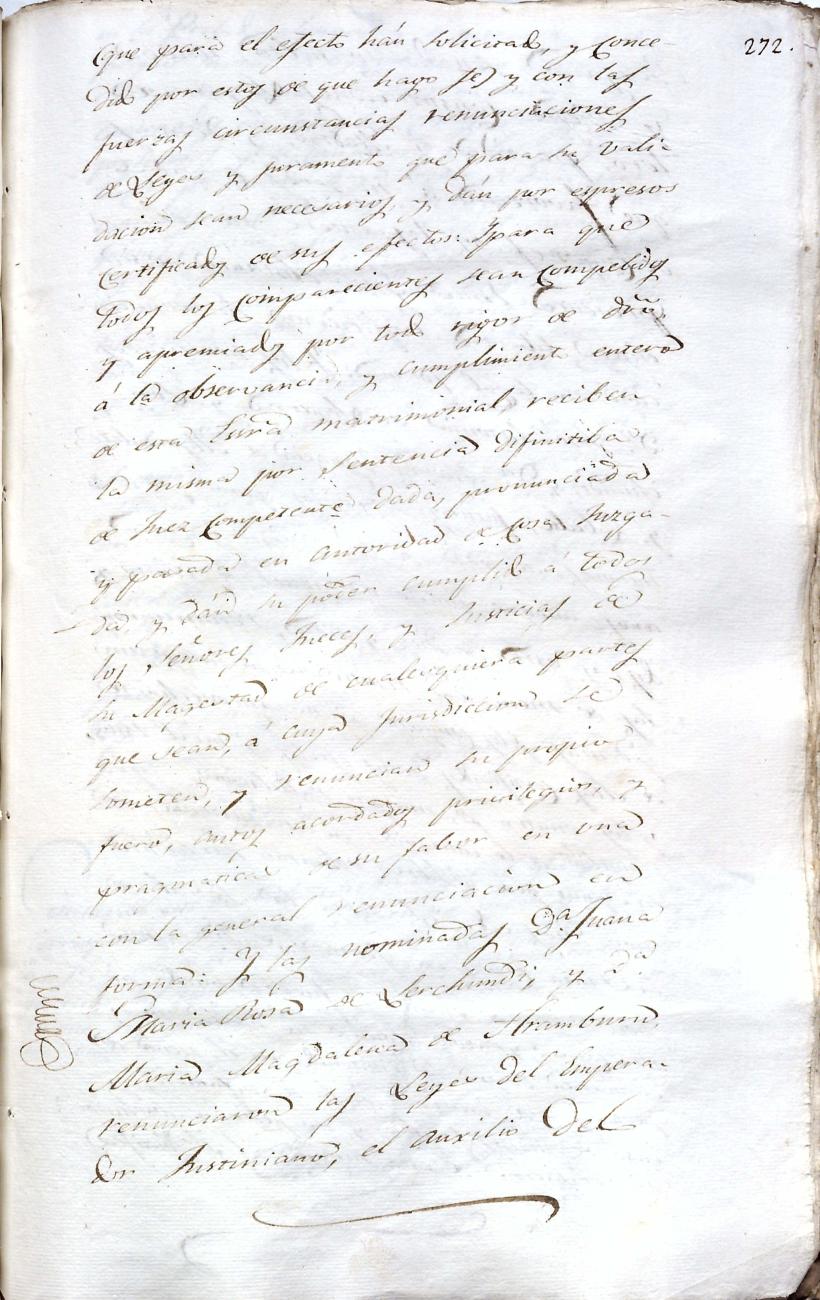 272.
que para el efecto hán solicitado, y conce-
dido por estos de que hago fe) y con las
fuerzas circunstancias renunciaciones
de Leyes y juramento que para su vali-
dacion sean necesarios, y dán por expresos
certificados de sus efectos: Ypara que
todos los comparecientes sean compelidos
y apremiados por todo rigor de dro
á la observancia, y cumplimiento entero
de esta Esrra matrimonial, reciben
la misma por Sentencia difinitiba
de Juez competente dada, pronunciada
y pasada en autoridad de Cosa Juzga-
da, y dán su poder cumplido á todos
los Señores Jueces, y Justicias de
su Magestad de cualesquiera partes
que sean, á cuya Jurisdiccion se
someten, y renuncian su propio
fuero, autos acordados privilegios, y
pragmaticas de su fabor en una
con la general renunciacion en
forma: Y las nominadas Da Juana
Maria Rosa de Lerchundi, y Da
Maria Magdalena de Aramburu,
renunciaron las Leyes del Empera-
dor Justiniano, el auxilio Del